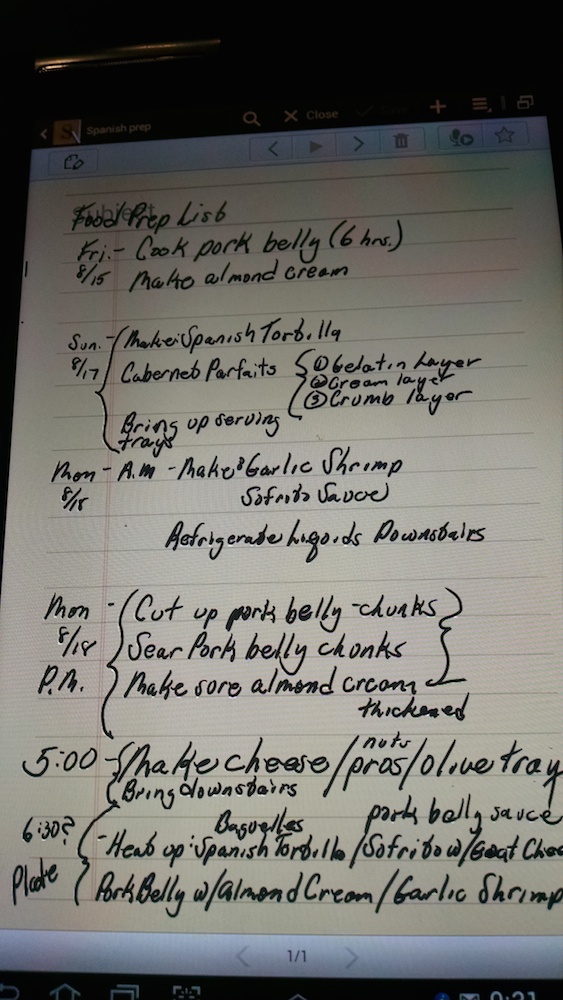 Spanish prep
Close
Subject
Food Prep List
Fri. - Cook pork belly (6 hrs.)
8/15 Make almond cream
Sun. - Make: Spanish Tortilla
8/17 Cabernet Parfaits ① Gelatin Layer
② Cream layer
③ Crumb layer
Bring up serving
trays
Mon - A.M - Make: Garlic Shrimp
8/18 Sofrito Sauce
Refrigerate Liquids Downstairs
Mon - Cut up pork belly - chunks
8/18 Sear Pork belly chunks
P.M. Make sure almond cream
thickened
nuts
5:00 - Make cheese/pros/olive tray
Bring downstairs
6:30? Baguettes pork belly sauce
- Heat up: Spanish Tortilla/Sofrito w/Goat Chee
Plate Pork Belly w/Almond Cream/Garlic Shrimp
1/1
9:21